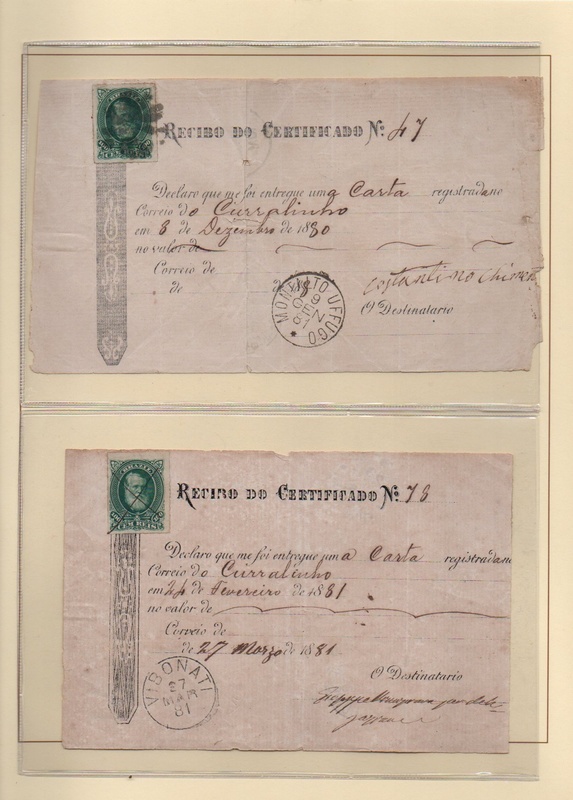 BRAZIL
CEM REIS
RECIBO DO CERTIFICADO Nº 47
Declaro que me foi entregue uma Carta registrada no
Correio do Curralinho
em 8 de Dezembro de 1880
no valor de
Correio de
de de 18
MONTALTO UFFUGO
9
GEN
Costantino
O Destinatario
BRAZIL
CEM REIS
RECIBO DO CERTIFICADO Nº 78
Declaro que me foi entregue uma Carta registrada no
Correio do Curralinho
em 24 de Fevereiro de 1881
no valor de
Correio de
de 27 Marzo de 1881
O Destinatario
VIBONATI
27
MAR
81